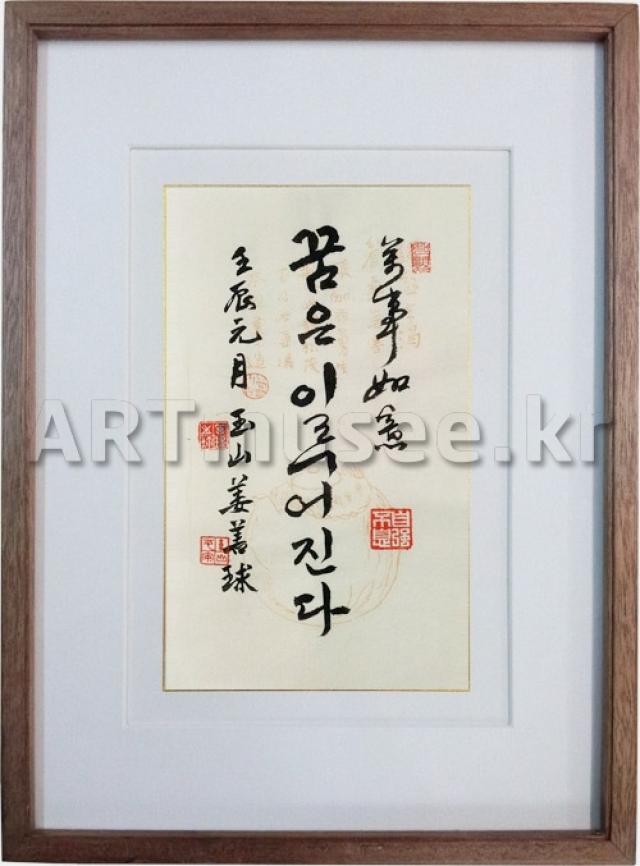 萬事如意
꿈은 이루어진다
壬辰元月 玉山 姜善球
自强不息
ARTmusee.kr